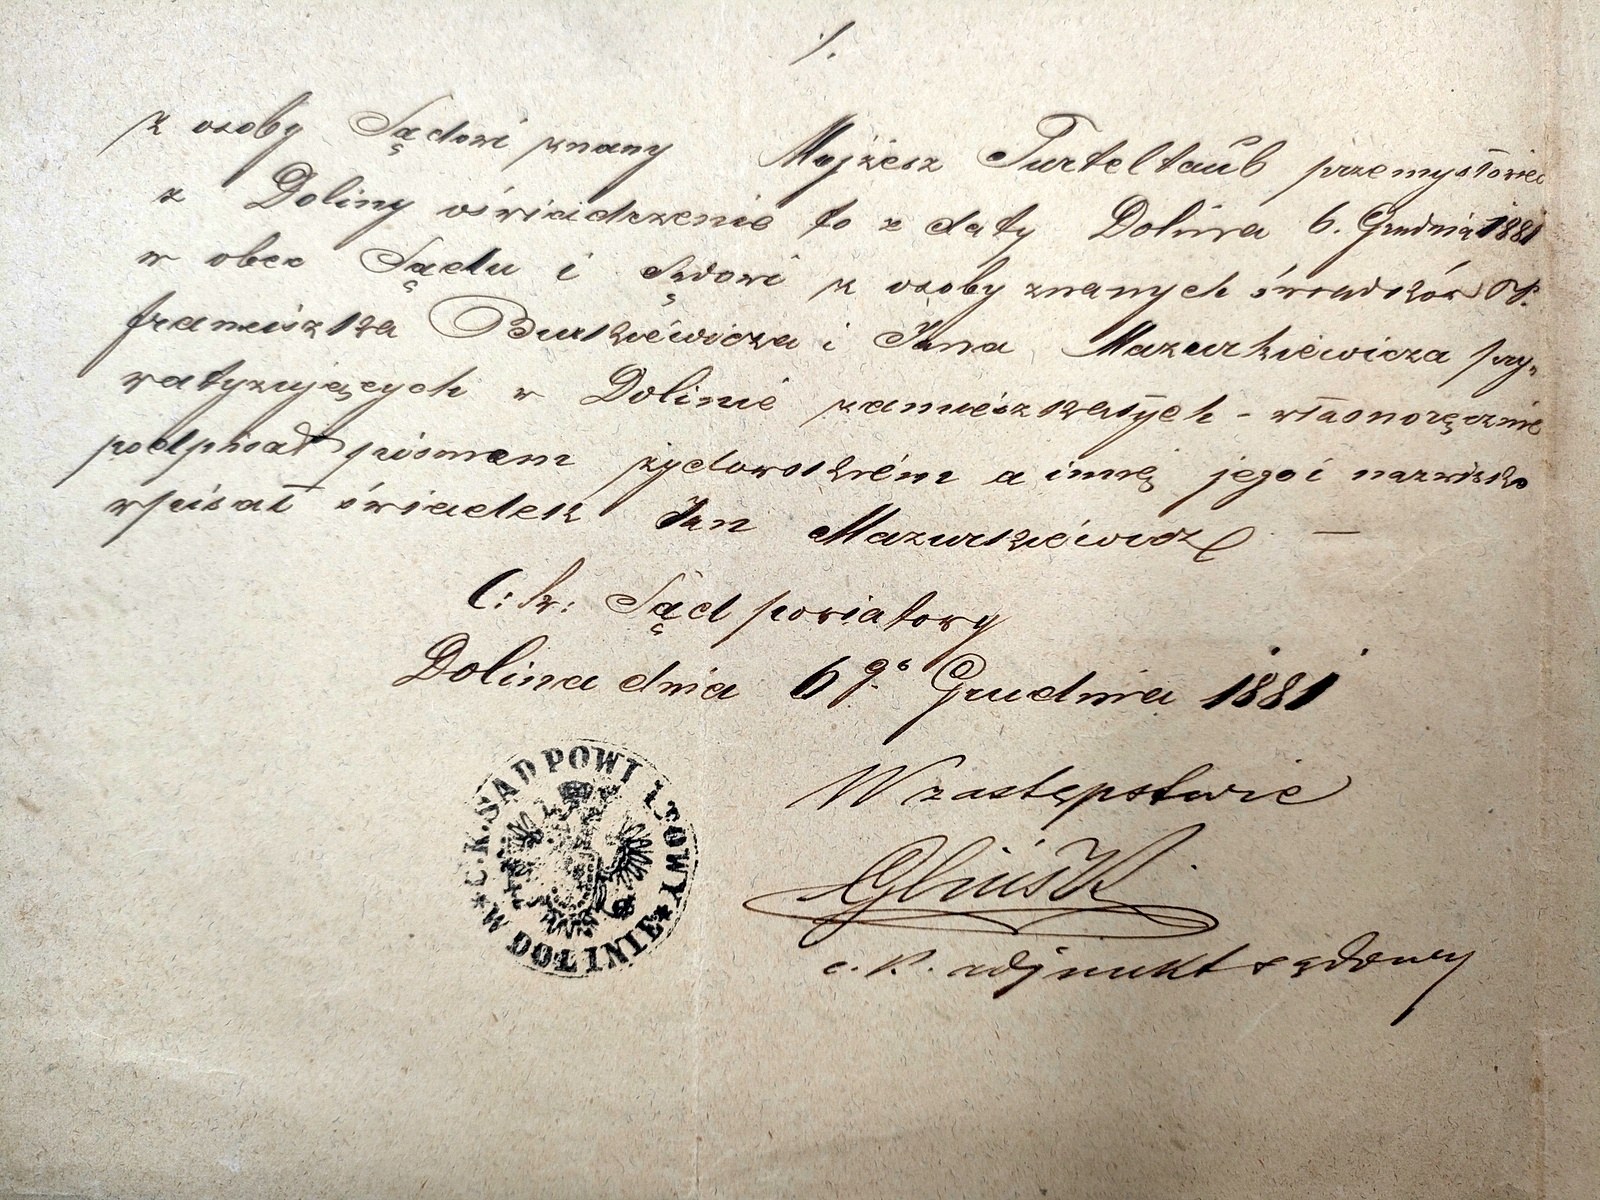 1.
z osoby Sądowi znany Mojżesz Turteltaub przemysłowiec
z Doliny oświadczenie to z daty Dolina 6. Grudnia 1881
w obec Sądu i Sądowi z osoby znanych świadków P.
Franciszka Burkiewicza i Jana Mazurkiewicza pry„
watyzujących w Dolinie zamieszkałych - własnoręcznie
podpisał pismem żydowskiém a imię jego i nazwisko
wpisał świadek Jan Mazurkiewicz —
C: k: Sąd powiatowy
Dolina dnia 6go Grudnia 1881
W zastępstwie
c. k. adjunkt sądowy
C.K. SĄD POWIATOWY
W DOLINIE